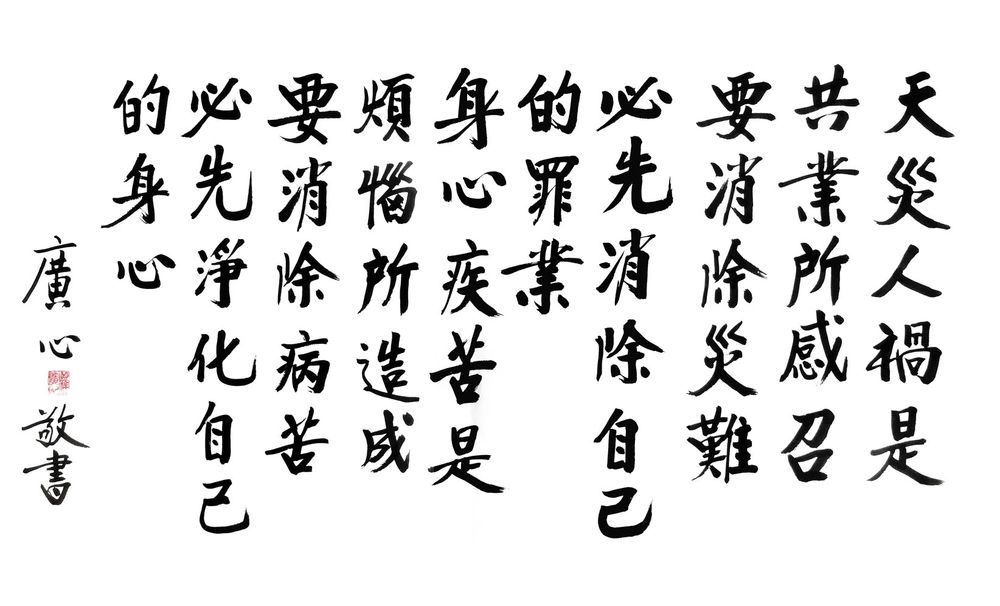 天災人禍是
共業所感召
要消除災難
必先消除自己
的罪業
身心疾苦是
煩惱所造成
要消除病苦
必先淨化自己
的身心
廣心敬書